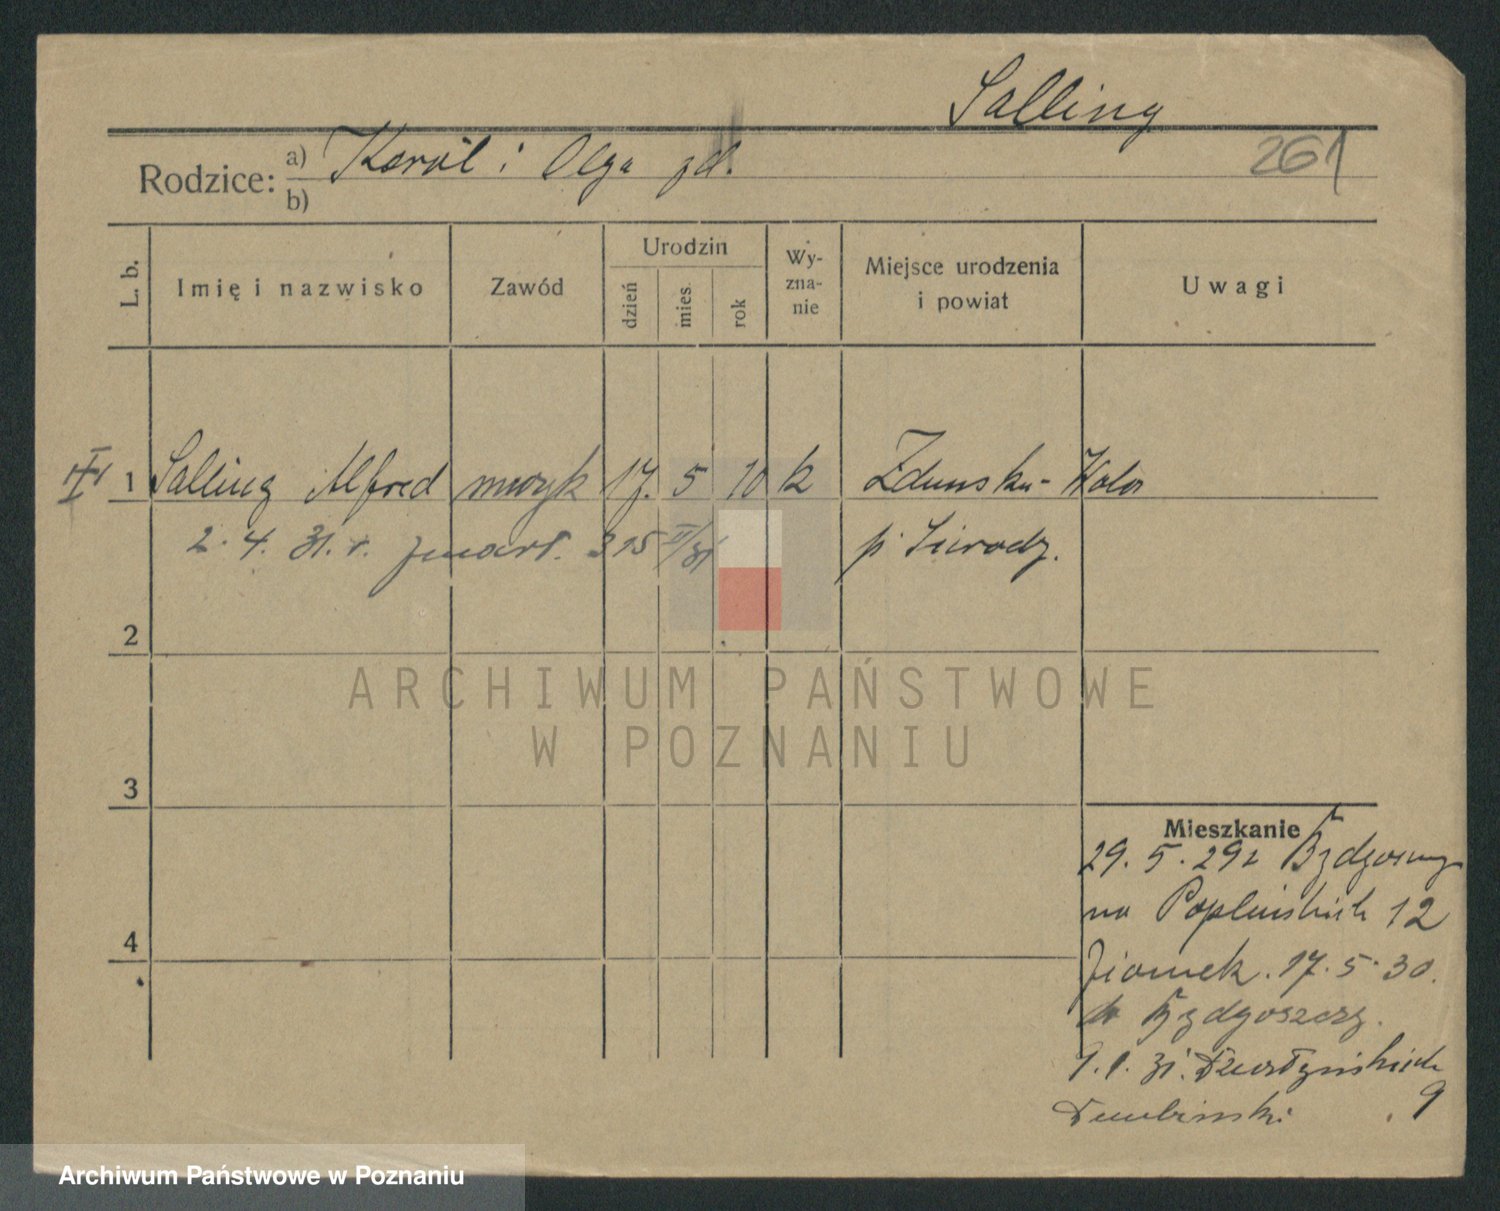 Salling
261
Rodzice: a) Karol i Olga zd.
b)
L. b. Imię i nazwisko Zawód Urodzin dzień mies. rok Wy-zna-nie Miejsce urodzenia i powiat Uwagi
1 Salling Alfred muzyk 17. 5 10 k Zduńska-Wola
2. 4. 31. r. zmarł. 315 II/31 p. Sieradz.
2
3
Mieszkanie
29. 5. 29 z Bydgoszczy
na Poplińskich 12
4
Ziomek. 17. 5. 30.
do Bydgoszczy.
9. 1. 31. Działyńskich
9
Dembinski
ARCHIWUM PAŃSTWOWE
W POZNANIU
Archiwum Państwowe w Poznaniu